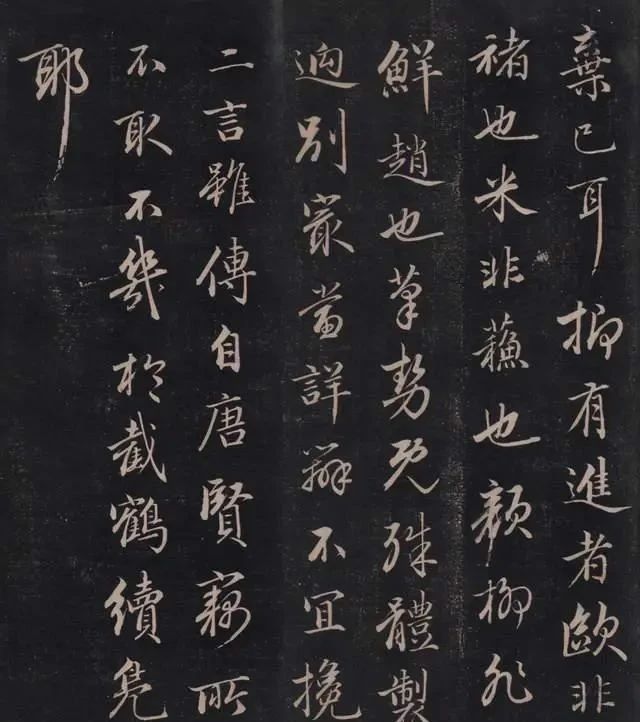 棄已耳抑有進者歐非
褚也米非蘇也顏柳非
鮮趙也筆勢既殊體製
迥別最當詳辨不宜攙
二言雖傳自唐賢竊所
不取不幾於截鶴續鳧
耶